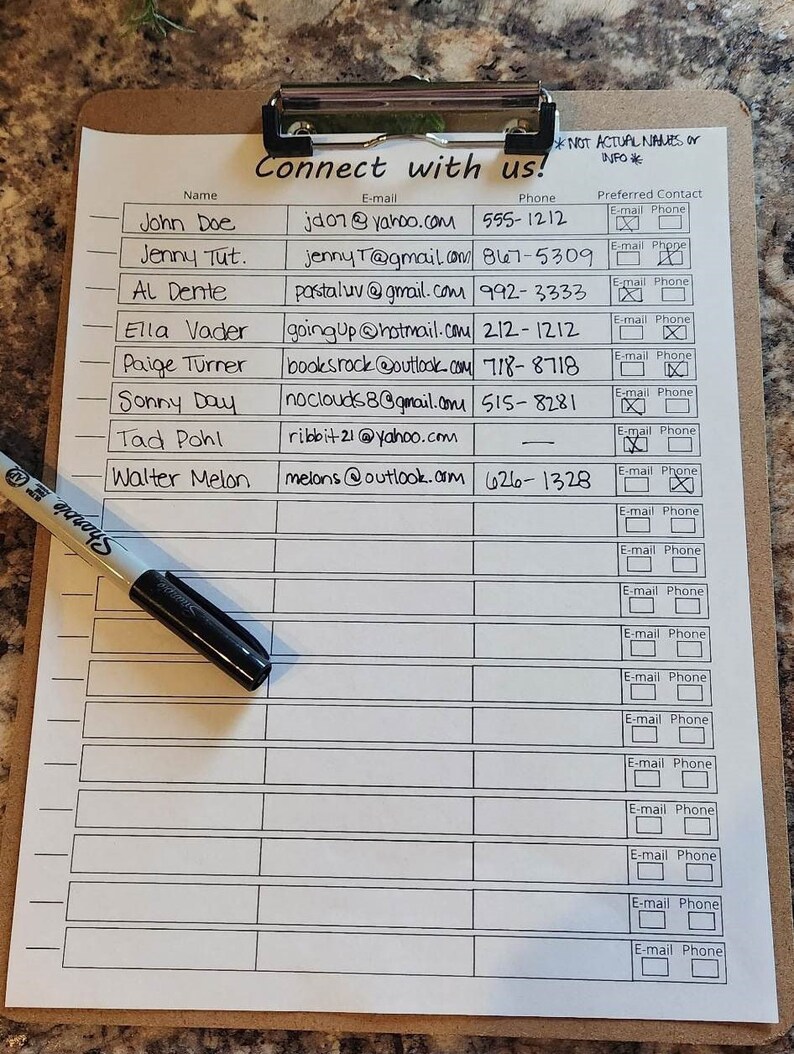 * NOT ACTUAL NAMES or
INFO *
Connect with us!
Name E-mail Phone Preferred Contact
John Doe jd07@yahoo.com 555-1212 E-mail Phone
Jenny Tut. jennyT@gmail.com 867-5309 E-mail Phone
Al Dente pastaluv@gmail.com 992-3333 E-mail Phone
Ella Vader goingup@hotmail.com 212-1212 E-mail Phone
Paige Turner booksrock@outlook.com 718-8718 E-mail Phone
Sonny Day noclouds8@gmail.com 515-8281 E-mail Phone
Tad Pohl ribbit21@yahoo.com — E-mail Phone
Walter Melon melons@outlook.com 626-1328 E-mail Phone
E-mail Phone
E-mail Phone
E-mail Phone
E-mail Phone
E-mail Phone
E-mail Phone
E-mail Phone
E-mail Phone
E-mail Phone
E-mail Phone
E-mail Phone
Sharpie
Sharpie